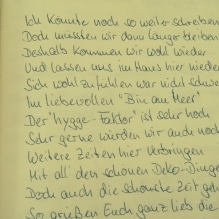 Ich könnte noch so weiter schreiben
Doch müssten wir dann länger bleiben
Deshalb kommen wir wohl wieder
Und lassen uns im Haus hier nieder
Sich wohl zu fühlen war nicht schwer
Im liebevollen "Bin am Meer"
Der "hygge-Faktor" ist sehr hoch
Sehr gerne würden wir auch noch
Weitere Zeiten hier verbringen
Mit all den schönen Deko-Dingen
Doch auch die schönste Zeit geh
So grüßen Euch ganz lieb die